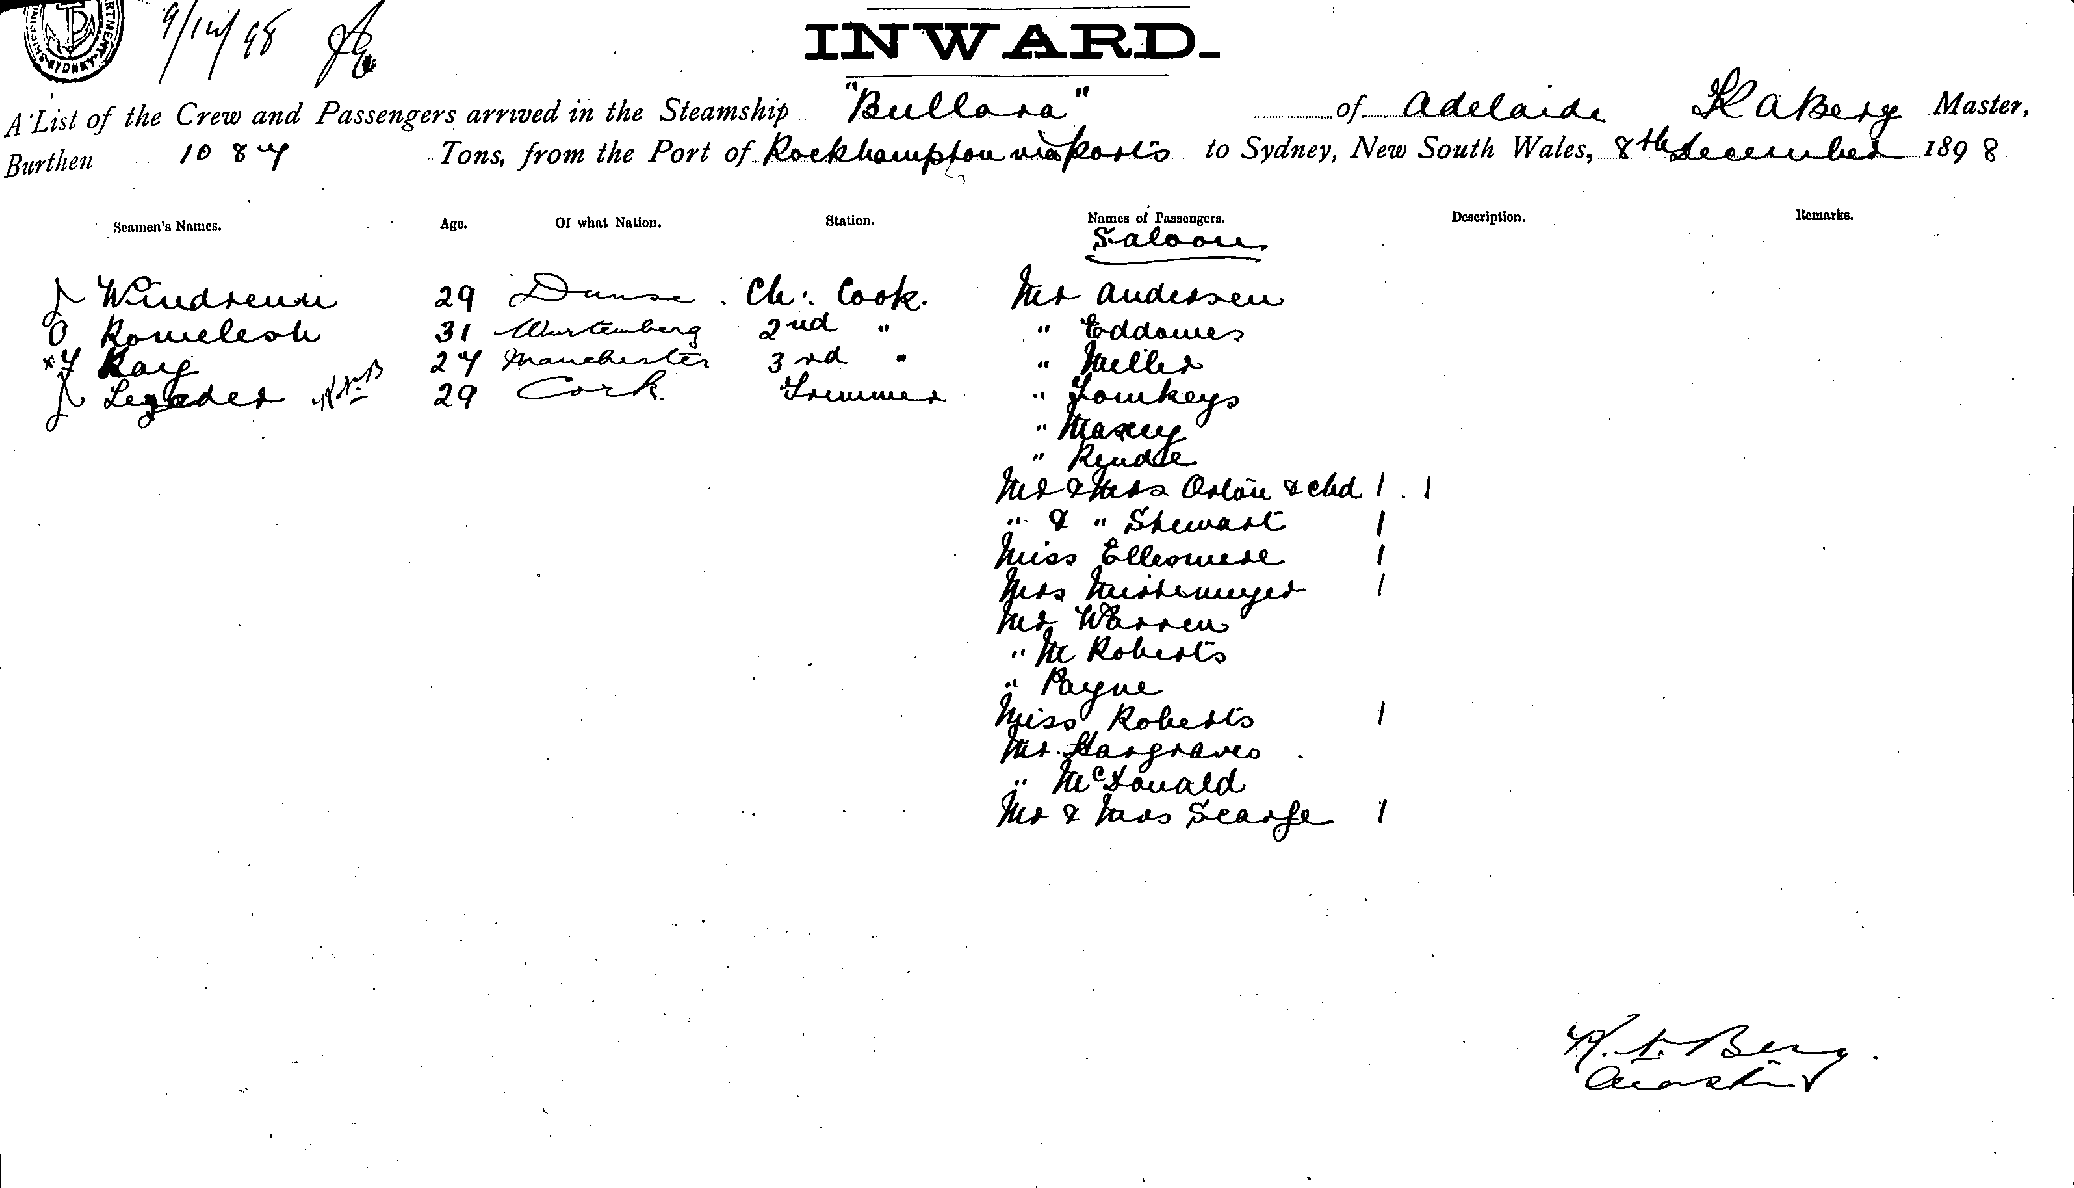 9/12/98
INWARD.
A List of the Crew and Passengers arrived in the Steamship "Bullara" of Adelaide K A Berg Master,
Burthen 1087 Tons, from the Port of Rockhampton via Ports to Sydney, New South Wales, 8th December 1898
Seamen's Names. Age. Of what Nation. Station. Names of Passengers. Description. Remarks.
Saloon
J 29 Ch: Cook. Mr Andersen
O 31 Wurtemberg 2nd " " Eddowes
27 Manchester 3rd " " Miller
J 29 Cork Trimmer " Tomkeys
" Maxey
"
Mr & Mrs & chd 1 . 1
" & " Stewart 1
Miss Ellesmere 1
Mrs 1
Mr Warren
" M Roberts
" Payne
Miss Roberts 1
Mr Hargraves
" McDonald
Mr & Mrs Scarfe 1
Berg.
Master